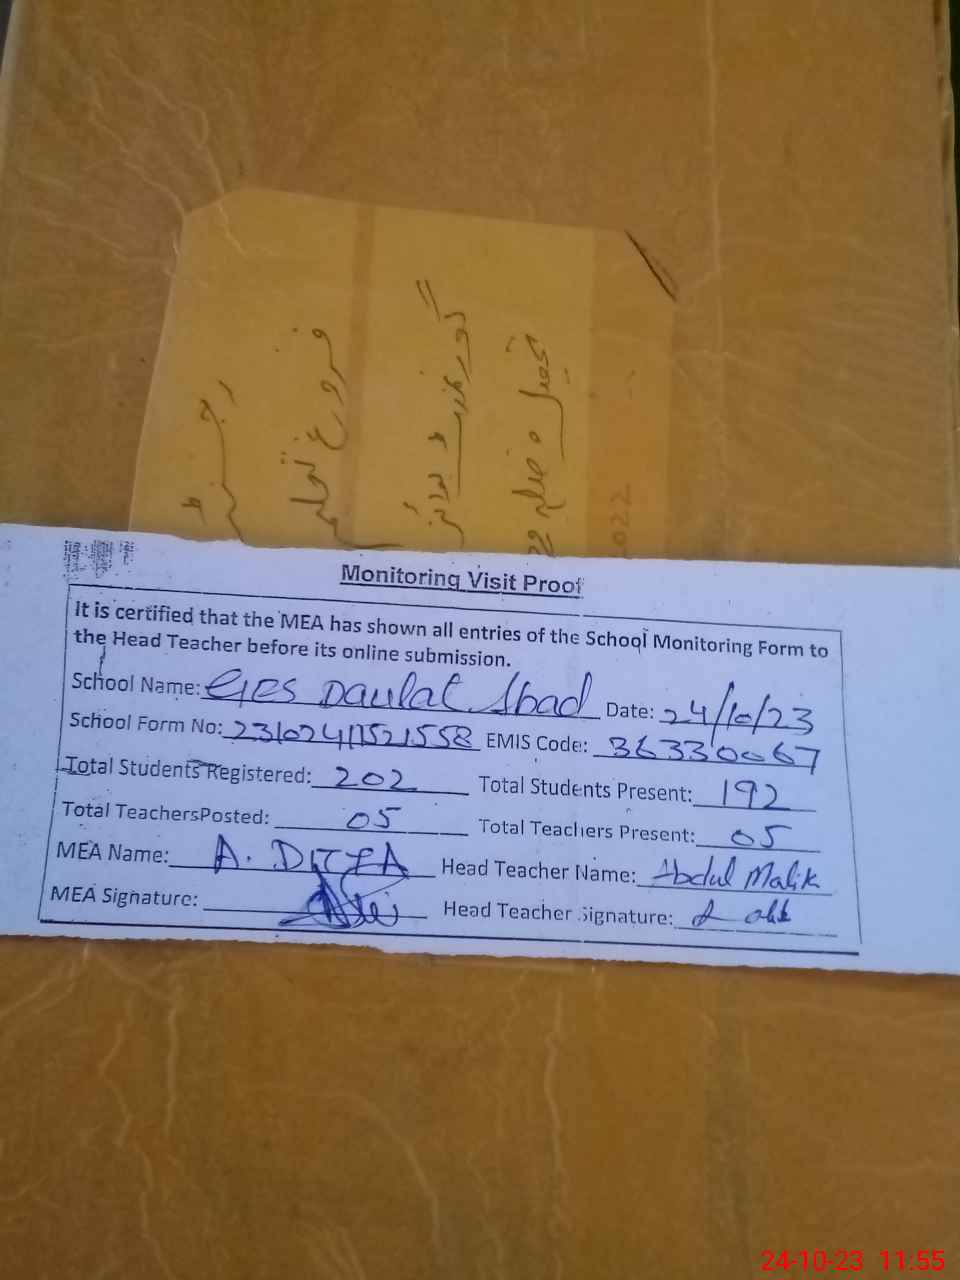 رجسٹر
فروغ تعلیم
گورنمنٹ
تحصیل و ضلع
2022
Monitoring Visit Proof
It is certified that the MEA has shown all entries of the School Monitoring Form to
the Head Teacher before its online submission.
School Name: GES Daulat Abad Date: 24/10/23
School Form No: EMIS Code: 36330067
Total Students Registered: 202 Total Students Present: 192
Total TeachersPosted: 05 Total Teachers Present: 05
MEA Name: A. DITTA Head Teacher Name: Abdul Malik
MEA Signature: Head Teacher Signature:
24-10-23 11:55